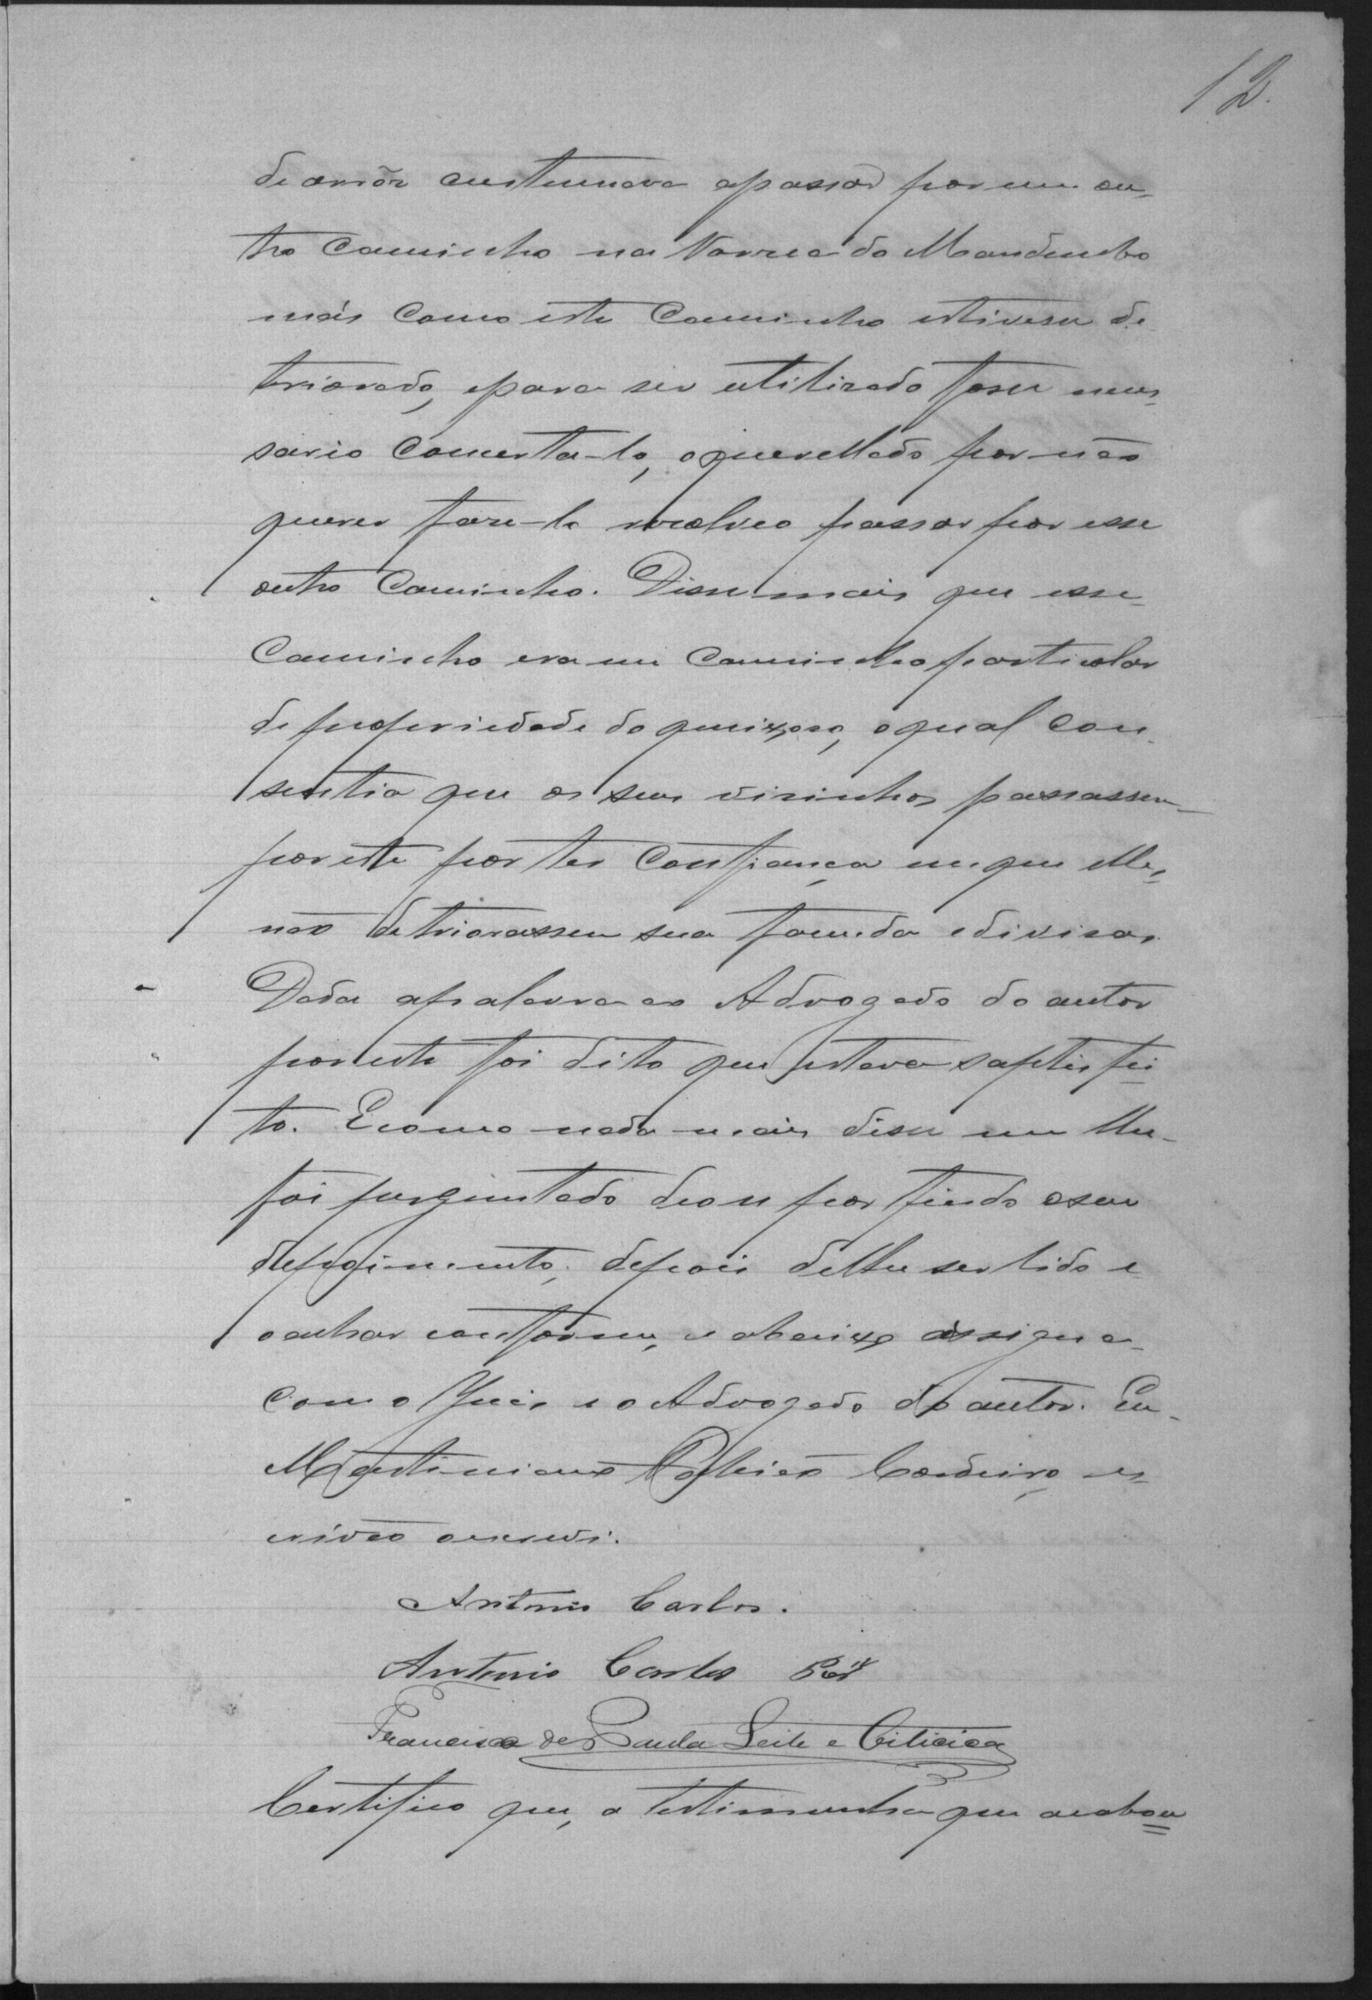 12.
de arroz custumava apassar por um ou-
tro caminho na Varzea do Mandembo
más como este caminho estivesse de
triorado, epara ser utilizado fosse neces-
sario concerta-lo, oquerellado por não
querer faze-lo resolveo passar por esse
outro caminho. Disse mais que esse
caminho era um caminho particolar
de propriedade do queixoso, oqual con-
sentia que os seus visinhos passassem
por este por ter confiança em que elles
não detriorassem sua fazenda edivisas.
Dada apalavra ao Advogado do autor
por este foi dito que estava saptisfei-
to. Ecomo nada mais disse nem lhe
foi perguntado deu-se por findo oseu
depoimento, depois delhe ser lido e
oachar conforme, e abaixo assigna
com o Juis e o Advogado do autor. Eu
Martiniano Cordeiro es-
crivão oescrevi.
Antonio Carlos.
Antonio Carlos
Francisco de Paula Leite e Oiticica
Certifico que, a testimunha que acabou